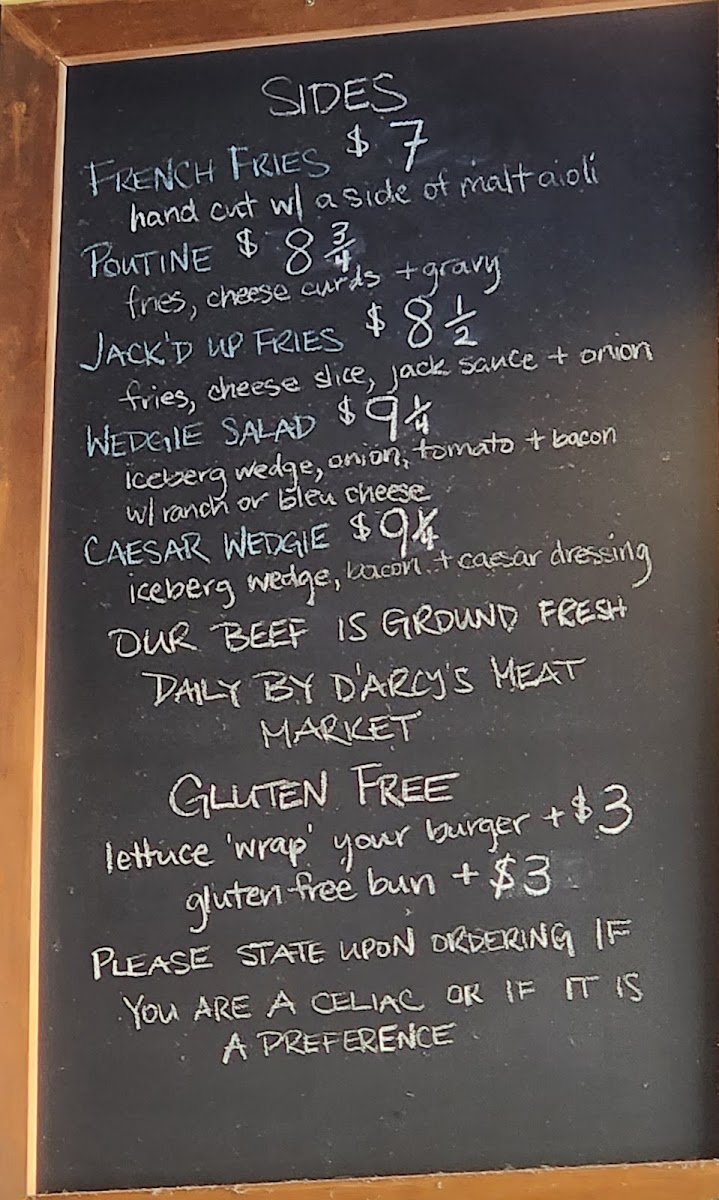 SIDES
FRENCH FRIES $ 7
hand cut w/ a side of malt aioli
POUTINE $ 8 3/4
fries, cheese curds + gravy
JACK'D UP FRIES $ 8 1/2
fries, cheese slice, jack sauce + onion
WEDGIE SALAD $ 9 1/4
iceberg wedge, onion, tomato + bacon
w/ ranch or bleu cheese
CAESAR WEDGIE $ 9 1/4
iceberg wedge, bacon + caesar dressing
OUR BEEF IS GROUND FRESH
DAILY BY D'ARCY'S MEAT
MARKET
GLUTEN FREE
lettuce 'wrap' your burger + $3
gluten-free bun + $3
PLEASE STATE UPON ORDERING IF
YOU ARE A CELIAC OR IF IT IS
A PREFERENCE